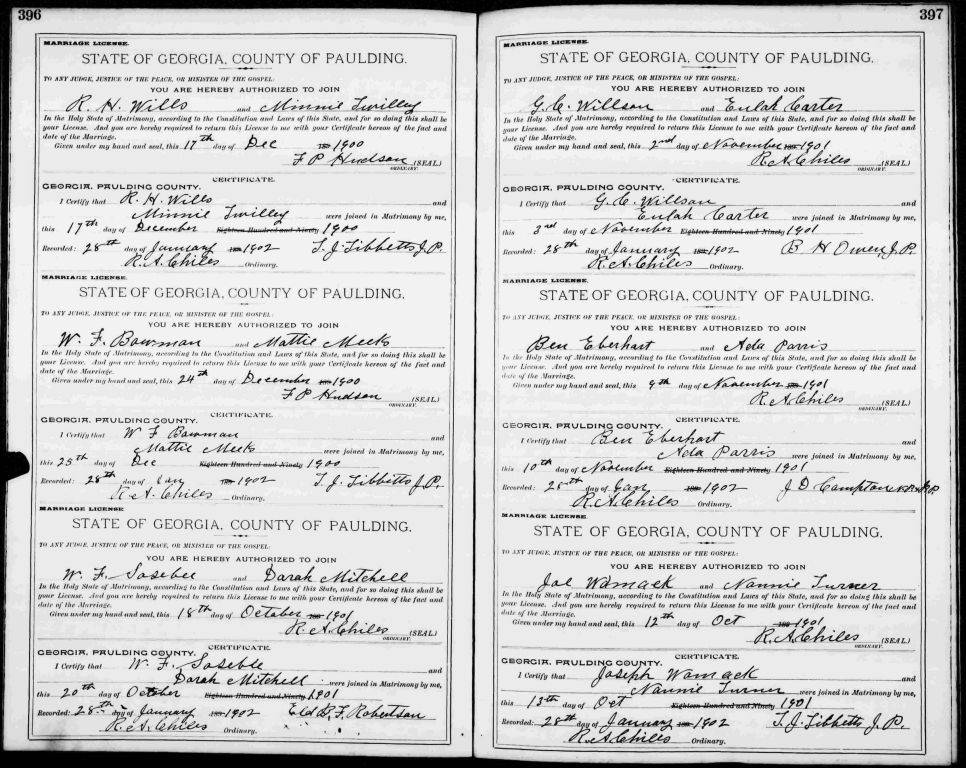 396
MARRIAGE LICENSE.
STATE OF GEORGIA, COUNTY OF PAULDING.
TO ANY JUDGE, JUSTICE OF THE PEACE, OR MINISTER OF THE GOSPEL:
YOU ARE HEREBY AUTHORIZED TO JOIN
R. H. Wills and Minnie Twilley
In the Holy State of Matrimony, according to the Constitution and Laws of this State, and for so doing this shall be
your License. And you are hereby required to return this License to me with your Certificate hereon of the fact and
date of the Marriage.
Given under my hand and seal, this 17th day of Dec 1900
F P Hudson (SEAL)
ORDINARY.
CERTIFICATE.
GEORGIA, PAULDING COUNTY.
I Certify that R. H. Wills and
Minnie Twilley were joined in Matrimony by me,
this 17th day of December Eighteen Hundred and Ninety 1900
Recorded: 28th day of January 1902 T. J. Tibbetts J.P.
R. A. Chiles Ordinary.
MARRIAGE LICENSE.
STATE OF GEORGIA, COUNTY OF PAULDING.
TO ANY JUDGE, JUSTICE OF THE PEACE, OR MINISTER OF THE GOSPEL:
YOU ARE HEREBY AUTHORIZED TO JOIN
W. F. Bowman and Mattie Meeks
In the Holy State of Matrimony, according to the Constitution and Laws of this State, and for so doing this shall be
your License. And you are hereby required to return this License to me with your Certificate hereon of the fact and
date of the Marriage.
Given under my hand and seal, this 24th day of December 1900
F P Hudson (SEAL)
ORDINARY.
CERTIFICATE.
GEORGIA, PAULDING COUNTY.
I Certify that W F Bowman and
Mattie Meeks were joined in Matrimony by me,
this 25th day of Dec Eighteen Hundred and Ninety 1900
Recorded: 28th day of Jan 1902 T. J. Tibbetts J.P.
R A Chiles Ordinary.
MARRIAGE LICENSE
STATE OF GEORGIA, COUNTY OF PAULDING.
TO ANY JUDGE, JUSTICE OF THE PEACE, OR MINISTER OF THE GOSPEL:
YOU ARE HEREBY AUTHORIZED TO JOIN
W. F. Sosebee and Darah Mitchell
In the Holy State of Matrimony, according to the Constitution and Laws of this State, and for so doing this shall be
your License. And you are hereby required to return this License to me with your Certificate hereon of the fact and
date of the Marriage.
Given under my hand and seal, this 18th day of October 1901
R. A. Chiles (SEAL)
ORDINARY.
CERTIFICATE.
GEORGIA, PAULDING COUNTY.
I Certify that W. F. Soseble and
Darah Mitchell were joined in Matrimony by me,
this 20th day of October Eighteen Hundred and Ninety 1901
Recorded: 28th day of January 1902 F. Robertson
R. A. Chiles Ordinary.
397
MARRIAGE LICENSE.
STATE OF GEORGIA, COUNTY OF PAULDING.
TO ANY JUDGE, JUSTICE OF THE PEACE, OR MINISTER OF THE GOSPEL:
YOU ARE HEREBY AUTHORIZED TO JOIN
G. C. Willson and Eulah Carter
In the Holy State of Matrimony, according to the Constitution and Laws of this State, and for so doing this shall be
your License. And you are hereby required to return this License to me with your Certificate hereon of the fact and
date of the Marriage.
Given under my hand and seal, this 2nd day of November 1901
R. A. Chiles (SEAL)
ORDINARY.
CERTIFICATE.
GEORGIA, PAULDING COUNTY.
I Certify that G. C. Willson and
Eulah Carter were joined in Matrimony by me,
this 3rd day of November Eighteen Hundred and Ninety 1901
Recorded: 28th day of January 1902 B. H Owen, J.P.
R. A. Chiles Ordinary.
MARRIAGE LICENSE.
STATE OF GEORGIA, COUNTY OF PAULDING.
TO ANY JUDGE, JUSTICE OF THE PEACE, OR MINISTER OF THE GOSPEL:
YOU ARE HEREBY AUTHORIZED TO JOIN
Ben Eberhart and Ada Parris
In the Holy State of Matrimony, according to the Constitution and Laws of this State, and for so doing this shall be
your License. And you are hereby required to return this License to me with your Certificate hereon of the fact and
date of the Marriage.
Given under my hand and seal, this 9th day of November 1901
R. A. Chiles (SEAL)
ORDINARY.
CERTIFICATE.
GEORGIA, PAULDING COUNTY.
I Certify that Ben Eberhart and
Ada Parris were joined in Matrimony by me,
this 10th day of November Eighteen Hundred and Ninety 1901
Recorded: 28th day of Jan 1902 J D Campton
R. A. Chiles Ordinary.
MARRIAGE LICENSE.
STATE OF GEORGIA, COUNTY OF PAULDING.
TO ANY JUDGE, JUSTICE OF THE PEACE, OR MINISTER OF THE GOSPEL:
YOU ARE HEREBY AUTHORIZED TO JOIN
Joe Womack and Nannie Turner
In the Holy State of Matrimony, according to the Constitution and Laws of this State, and for so doing this shall be
your License. And you are hereby required to return this License to me with your Certificate hereon of the fact and
date of the Marriage.
Given under my hand and seal, this 12th day of Oct 1901
R. A. Chiles (SEAL)
ORDINARY.
CERTIFICATE.
GEORGIA, PAULDING COUNTY.
I Certify that Joseph Womack and
Nannie Turner were joined in Matrimony by me,
this 13th day of Oct Eighteen Hundred and Ninety 1901
Recorded: 28th day of January 1902 T. J. Tibbetts J.P.
R. A. Chiles Ordinary.